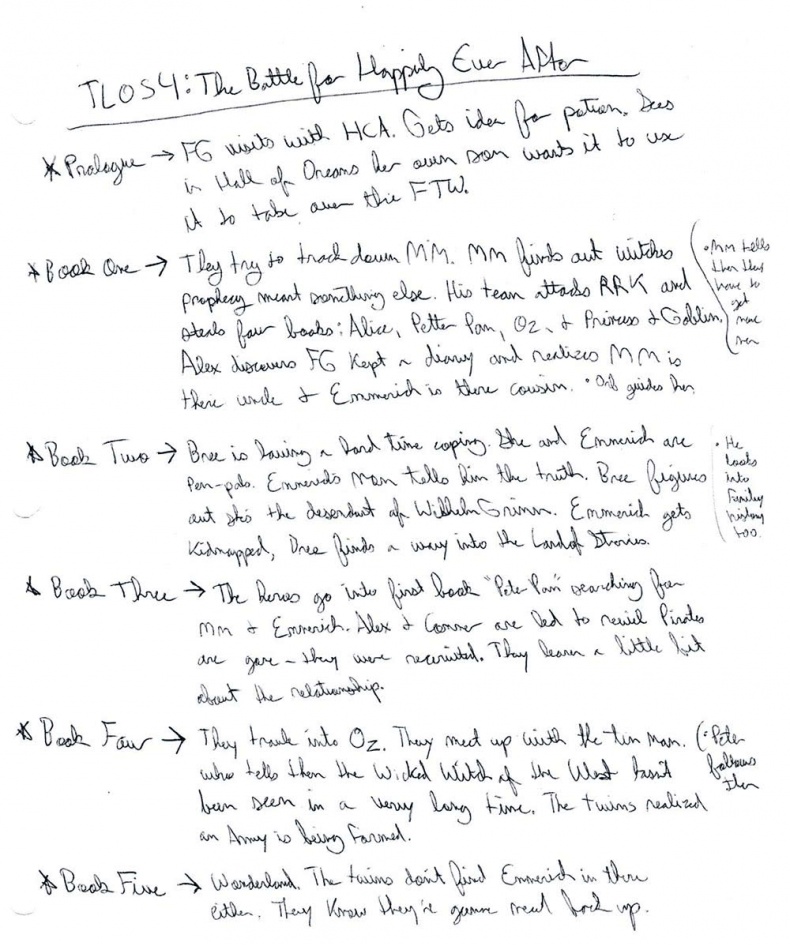 TLOS4: The Battle for Happily Ever After
* Prologue → FG visits with HCA. Gets idea for potion. Sees
in Hall of Dreams her own son wants it to use
it to take over the FTW.
* Book One → They try to track down MM. MM finds out witches
prophecy meant something else. His team attacks RRK and
steals four books: Alice, Petter Pan, Oz, & Princess & Goblin.
Alex discovers FG kept a diary and realizes MM is
there uncle & Emmerich is there cousin. • Orb guides her
• MM tells
them they
have to
get
more
men
* Book Two → Bree is having a hard time coping. She and Emmerich are
Pen-pals. Emmerich's Mom tells him the truth. Bree figures
out she's the descendant of Wilhelm Grimm. Emmerich gets
Kidnapped, Bree finds a way into the Land of Stories.
• He
looks
into
Family
history
too.
* Book Three → The heroes go into first book "Peter Pan" searching for
MM & Emmerich. Alex & Conner are led to Pirates
are gone – they were recruited. They learn a little bit
about the relationship.
* Book Four → They travel into Oz. They meet up with the tin man.
who tells them the Wicked Witch of the West hasn't
been seen in a very long time. The twins realized
an Army is being formed.
• Peter
follows
them
* Book Five → Wonderland. The twins don't find Emmerich in there
either. They Know they're gunna need back up.